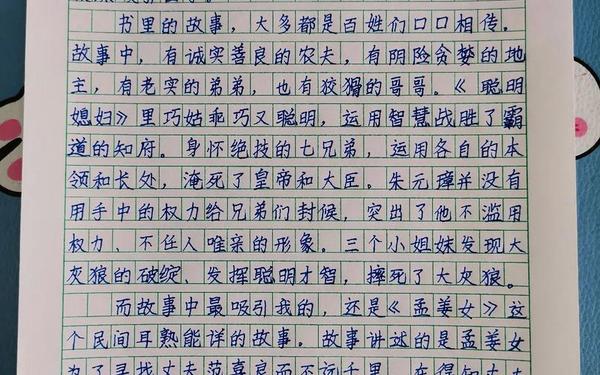 书里的故事，大多都是百姓们口口相传。
故事中，有诚实善良的农夫，有阴险贪婪的地
主，有老实的弟弟，也有狡猾的哥哥。《聪明
媳妇》里巧姑乖巧又聪明，运用智慧战胜了霸
道的知府。身怀绝技的七兄弟，运用各自的本
领和长处，淹死了皇帝和大臣。朱元璋并没有
用手中的权力给兄弟们封候，突出了他不滥用
权力、不任人唯亲的形象。三个小姐妹发现大
灰狼的破绽、发挥聪明才智，摔死了大灰狼。
而故事中最吸引我的，还是《孟姜女》这
个民间耳熟能详的故事。故事讲述的是孟姜女
为了寻找丈夫范喜良而不远千里，在得知丈夫